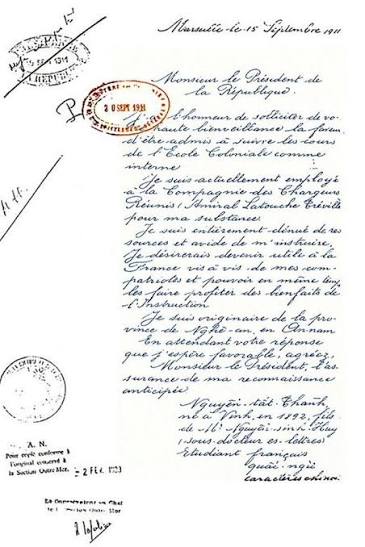 Marseille le 15 Septembre 1911
Monsieur le Président de
la République.
20 SEPT 1911
l'honneur de solliciter de vo-
haute bienveillance la faveur
d'être admis à suivre les cours
de l'Ecole Coloniale comme
interne
Je suis actuellement employé
à la Compagnie des Chargeurs
Réunis (Amiral Latouche Tréville
pour ma substance
Je suis entièrement dénué de res
sources et avide de m'instruire.
Je désirerais devenir utile à la
France vis à vis de mes com-
patriotes et pouvoir en même temps
les faire profiter des bienfaits de
l'Instruction
Je suis originaire de la pro
vince de Nghê-an, en Annam
En attendant votre réponse
que j'espère favorable, agréez,
Monsieur le Président, l'as
surance de ma reconnaissance
anticipée
Nguyên tât Thanh,
né à Vinh, en 1892, fils
de Mr Nguyên sinh Huy
(sous-docteur ès-lettres
Etudiant français,
quôc-ngu
caractères chinois
A. N.
Pour copie conforme à
l'original conservé à
la Section Outre-Mer.
2 FEV. 1983
Le Conservateur en Chef
de la Section Outre-Mer